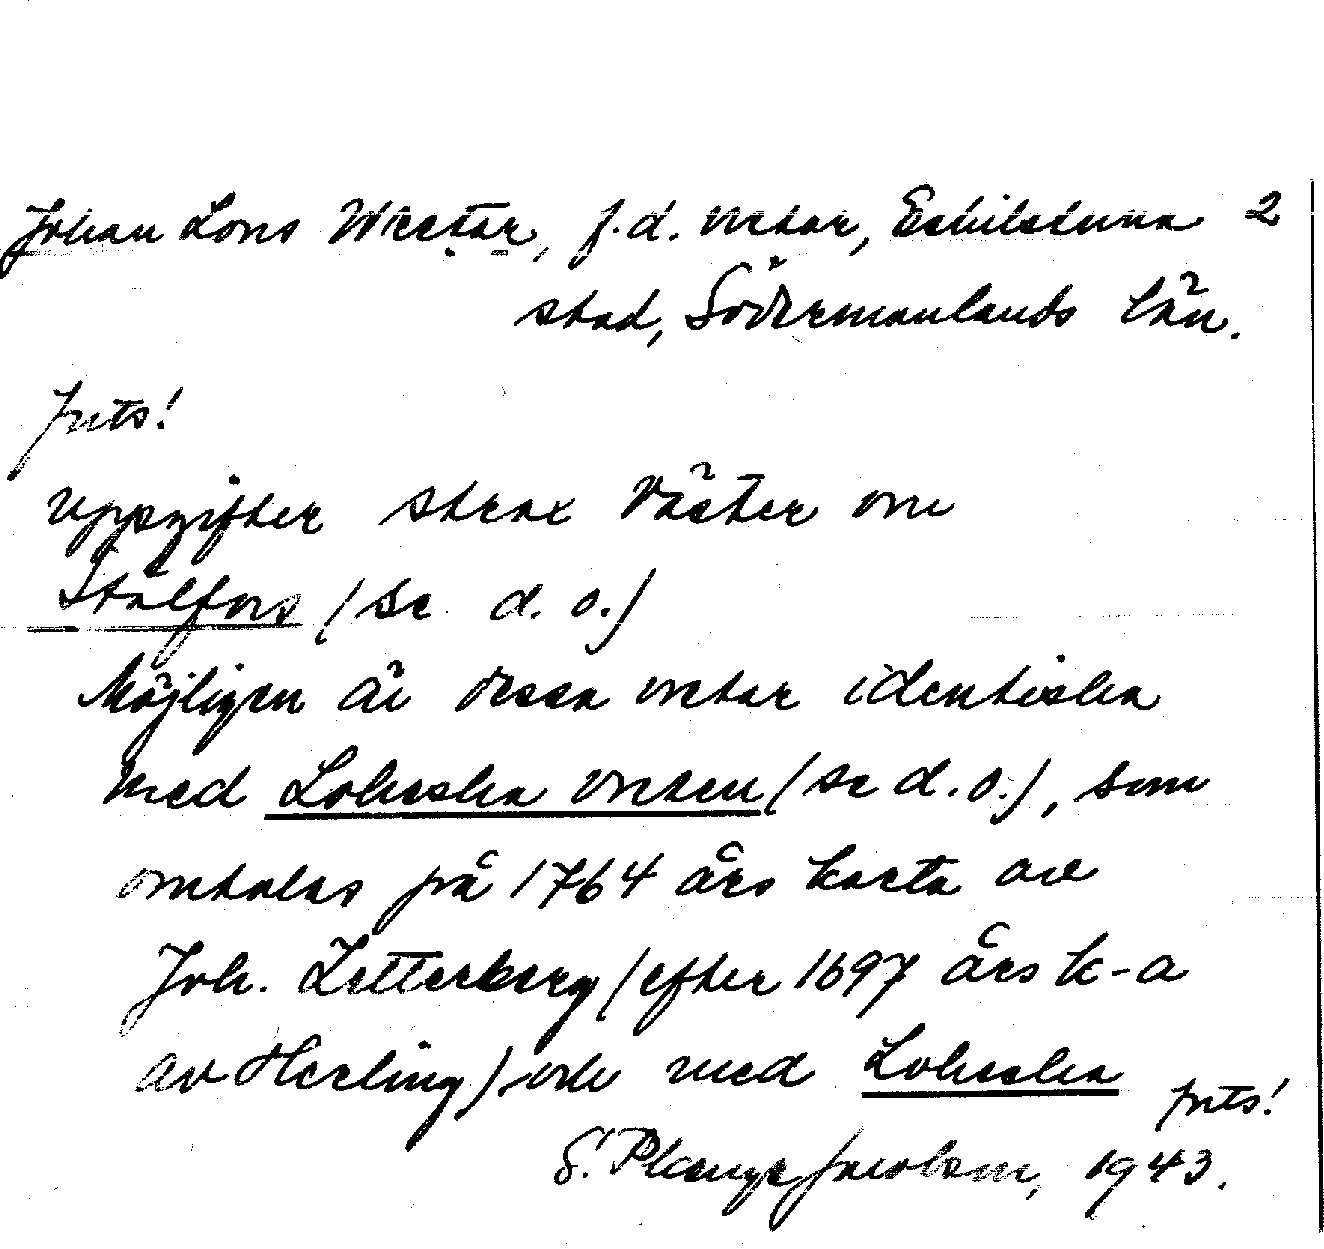 Johan Lors Wretar, f.d. vretar, Eskilstuna 2
stad, Södermanlands län.
forts!
uppgifter strax väster om
Stålfors (se d.o.)
Möjligen är dessa vretar identiska
med Loheska vreten (se d.o.), som
omtalas på 1764 års karta av
Joh. Zetterberg (efter 1697 års k-a
av Herling) och med Loheska
forts!
Jacobson, 1943.